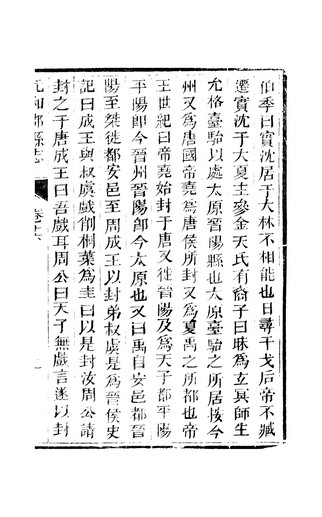 伯季曰實沈居于大林不相能也日尋干戈后帝不臧
遷實沈于大夏主參金天氏有裔子曰昧爲玄冥師生
允格臺駘以處太原晉陽縣也大原臺駘之所居按今
州又爲唐國帝堯爲唐侯所封又爲夏禹之所都也帝
王世紀曰帝堯始封于唐又徙晉陽及爲天子都平陽
平陽卽今晉州晉陽卽今太原也又曰禹自安邑都晉
陽至桀徙都安邑至周成王以封弟叔虞是爲晉侯史
記曰成王與叔虞戲削桐葉爲圭曰以是封汝周公請
封之于唐成王曰吾戲耳周公曰天子無戲言遂以封
元和郡縣志 卷十六